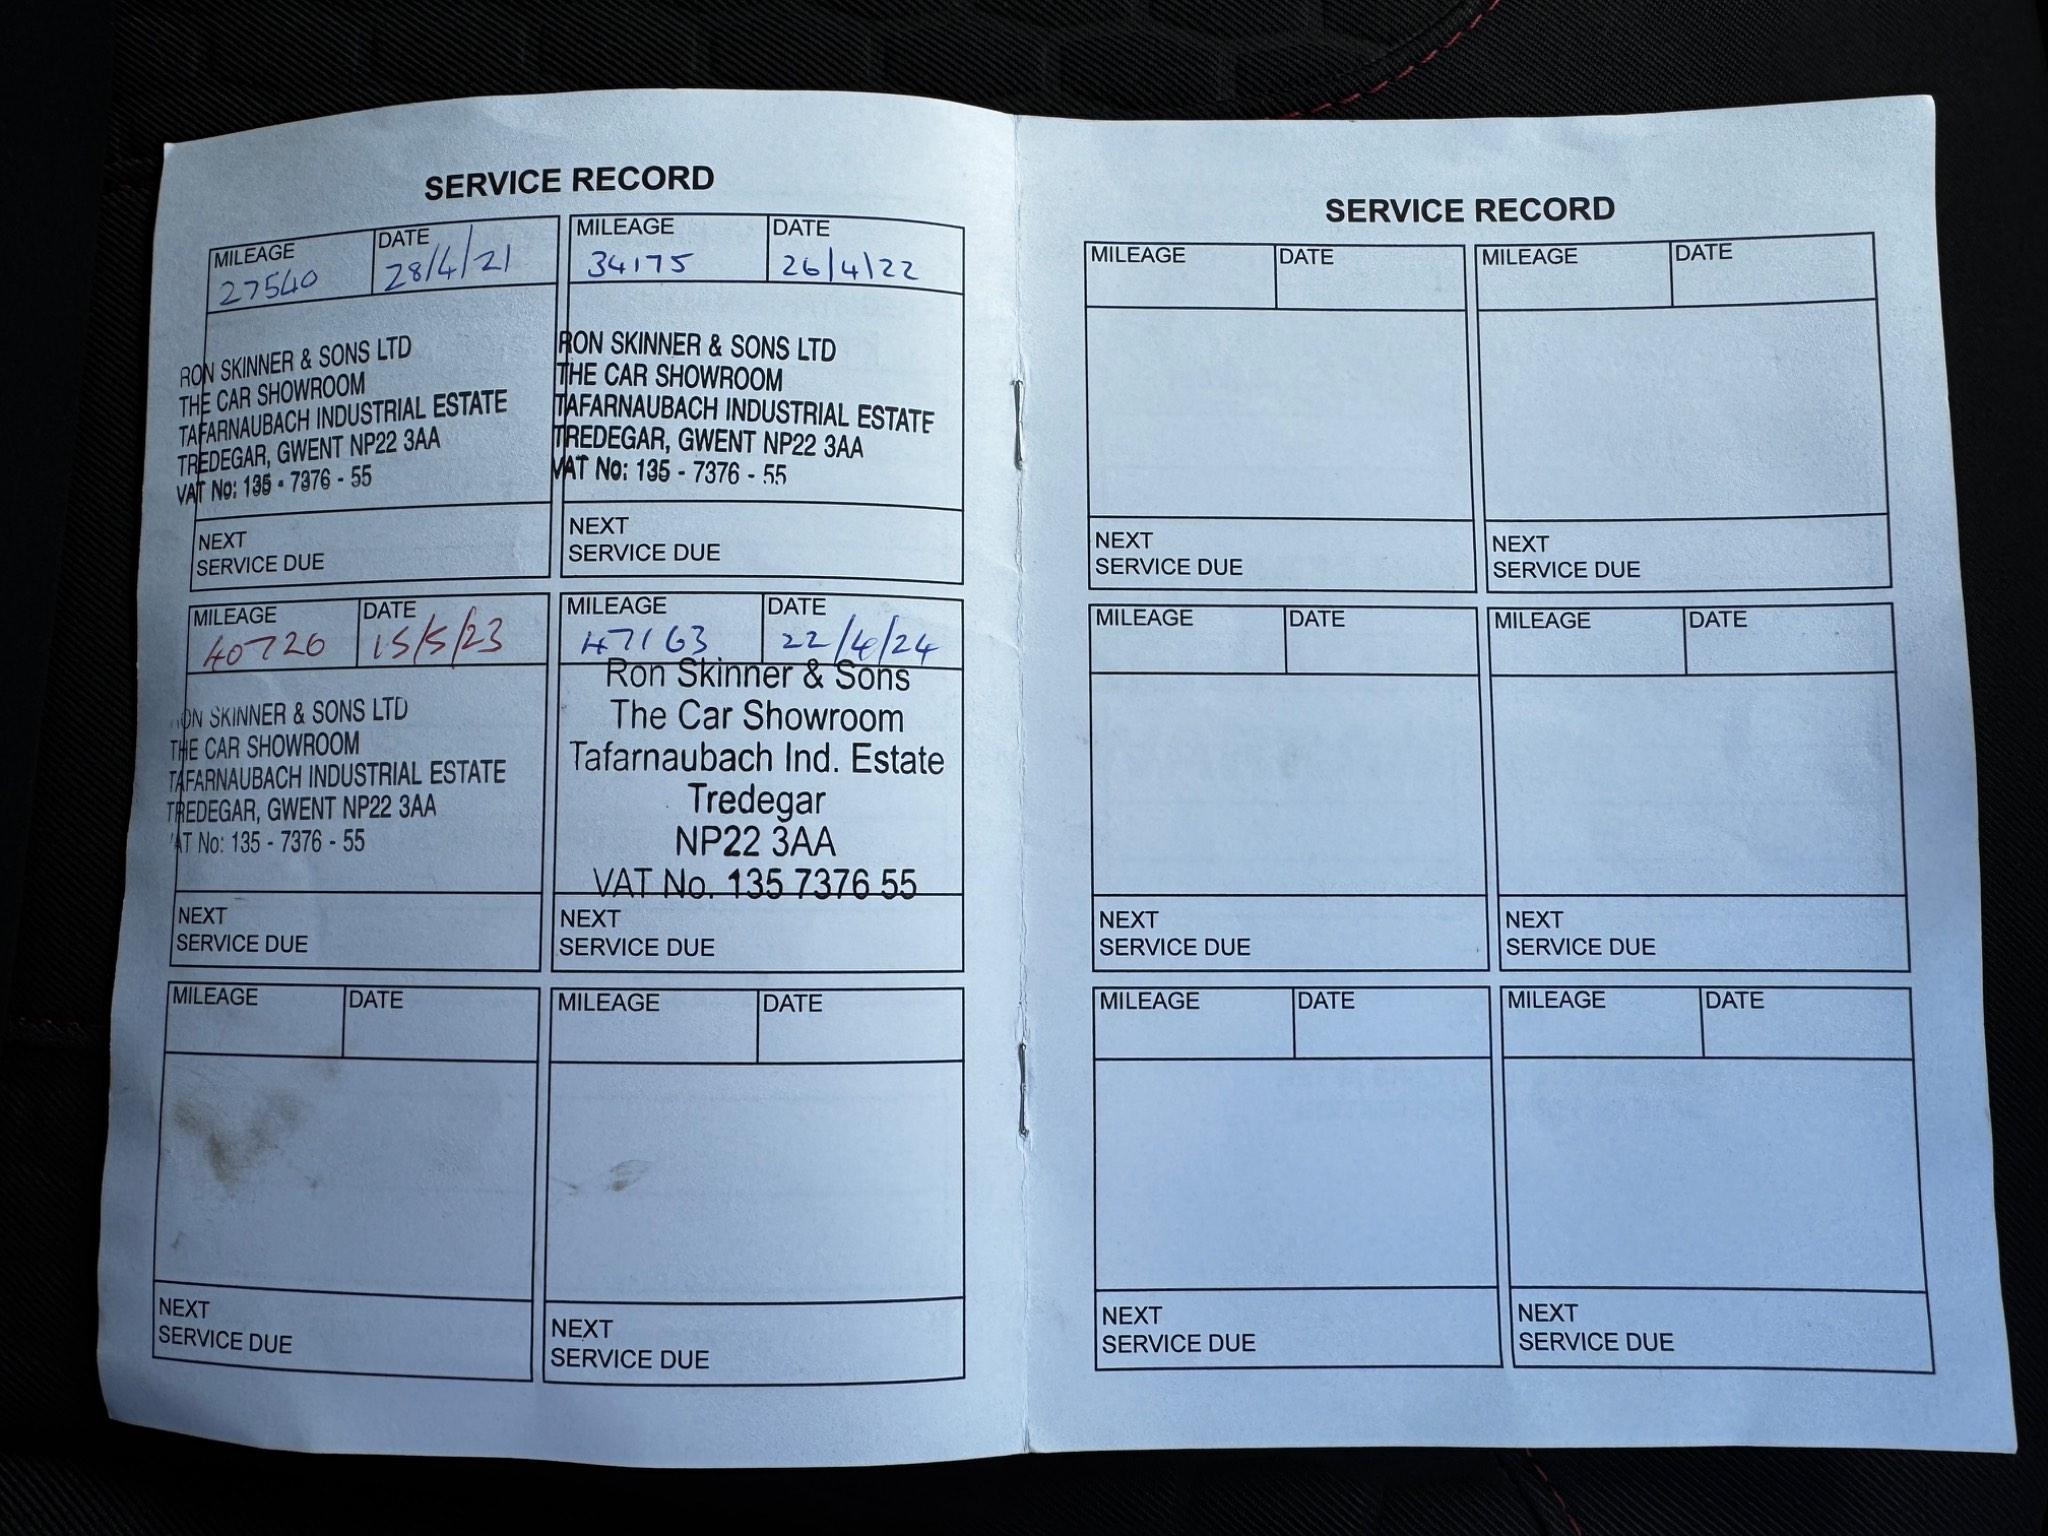 SERVICE RECORD
MILEAGE DATE
27540 28/4/21
RON SKINNER & SONS LTD
THE CAR SHOWROOM
TAFARNAUBACH INDUSTRIAL ESTATE
TREDEGAR, GWENT NP22 3AA
VAT No: 135 - 7376 - 55
NEXT
SERVICE DUE
MILEAGE DATE
34175 26/4/22
RON SKINNER & SONS LTD
THE CAR SHOWROOM
TAFARNAUBACH INDUSTRIAL ESTATE
TREDEGAR, GWENT NP22 3AA
VAT No: 135 - 7376 - 55
NEXT
SERVICE DUE
MILEAGE DATE
40726 15/5/23
RON SKINNER & SONS LTD
THE CAR SHOWROOM
TAFARNAUBACH INDUSTRIAL ESTATE
TREDEGAR, GWENT NP22 3AA
VAT No: 135 - 7376 - 55
NEXT
SERVICE DUE
MILEAGE DATE
47163 22/4/24
Ron Skinner & Sons
The Car Showroom
Tafarnaubach Ind. Estate
Tredegar
NP22 3AA
VAT No. 135 7376 55
NEXT
SERVICE DUE
MILEAGE DATE
NEXT
SERVICE DUE
MILEAGE DATE
NEXT
SERVICE DUE
SERVICE RECORD
MILEAGE DATE
NEXT
SERVICE DUE
MILEAGE DATE
NEXT
SERVICE DUE
MILEAGE DATE
NEXT
SERVICE DUE
MILEAGE DATE
NEXT
SERVICE DUE
MILEAGE DATE
NEXT
SERVICE DUE
MILEAGE DATE
NEXT
SERVICE DUE